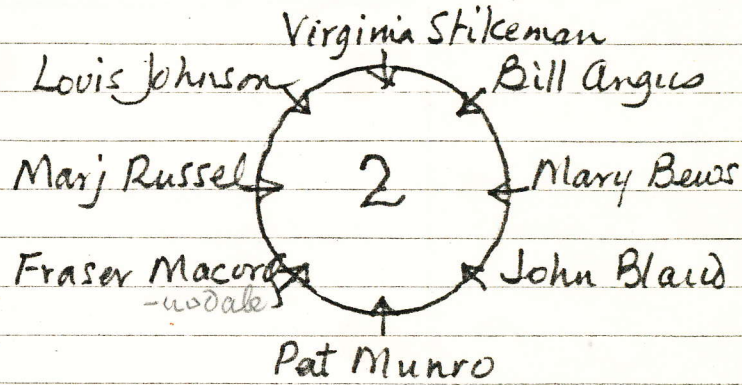 Virginia Stikeman
Louis Johnson
Bill Angus
Marj Russel
2
Mary Bews
Fraser
John
Pat Munro